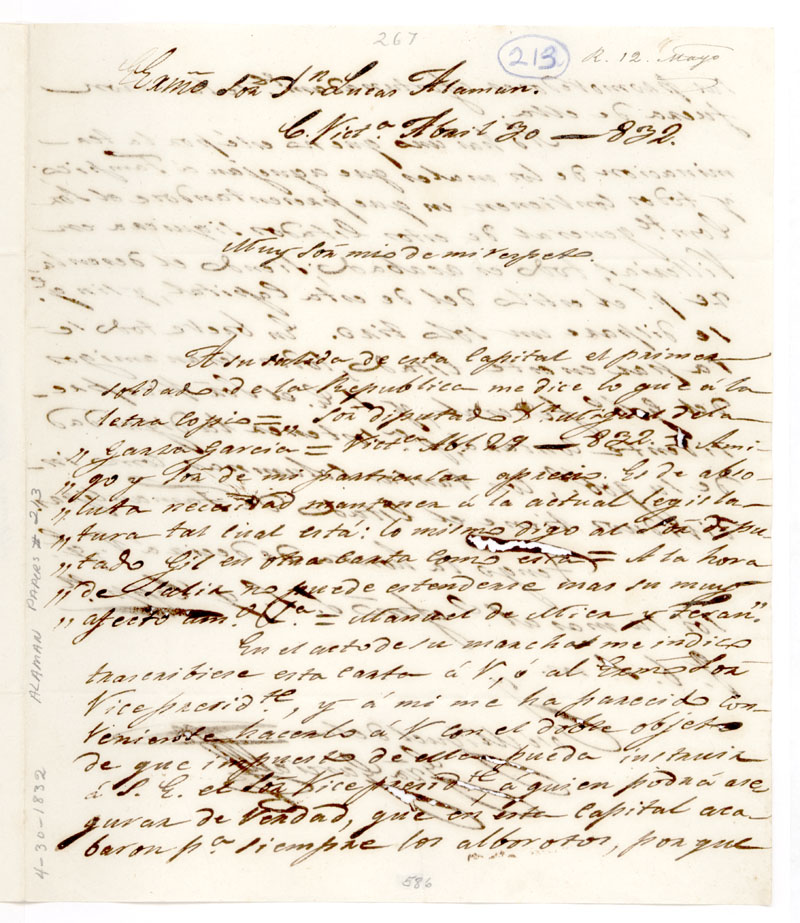 267
213
R. 12. Mayo
Exmo Sor Dn. Lucas Alaman.
C. Victa Abril 30 — 832.
Muy Sor mio de mi respeto.
A su salida de esta Capital el primer
soldado de la Republica me dice lo que á la
letra copio = Sor diputado Dn. Miguel de la
„ Garza Garcia = Victa Abl 29 — 832 = Ami-
„ go y Sor de mi particular aprecio. Es de abso-
„ luta necesidad mantener á la actual legisla-
„ tura tal cual está: lo mismo digo al Sor dipu-
„ tado Gil en otra carta como esta = A la hora
„ de salir no puede estenderse mas su muy
„ afecto amo = Manuel de Mier y Teran."
En el acto de su marcha me indicó
transcribiese esta carta á V, ó al Exmo Sor
Vicepresidte, y á mi me ha parecido con-
veniente hacerlo á V con el doble objeto
de que impuesto de ella pueda instruir
á S. E. el Sor Vicepresidte, á quien podrá ase-
gurar de verdad, que en esta Capital aca-
baron pa siempre los alborotos, porque
586
ALAMAN PAPERS # 213
4-30-1832